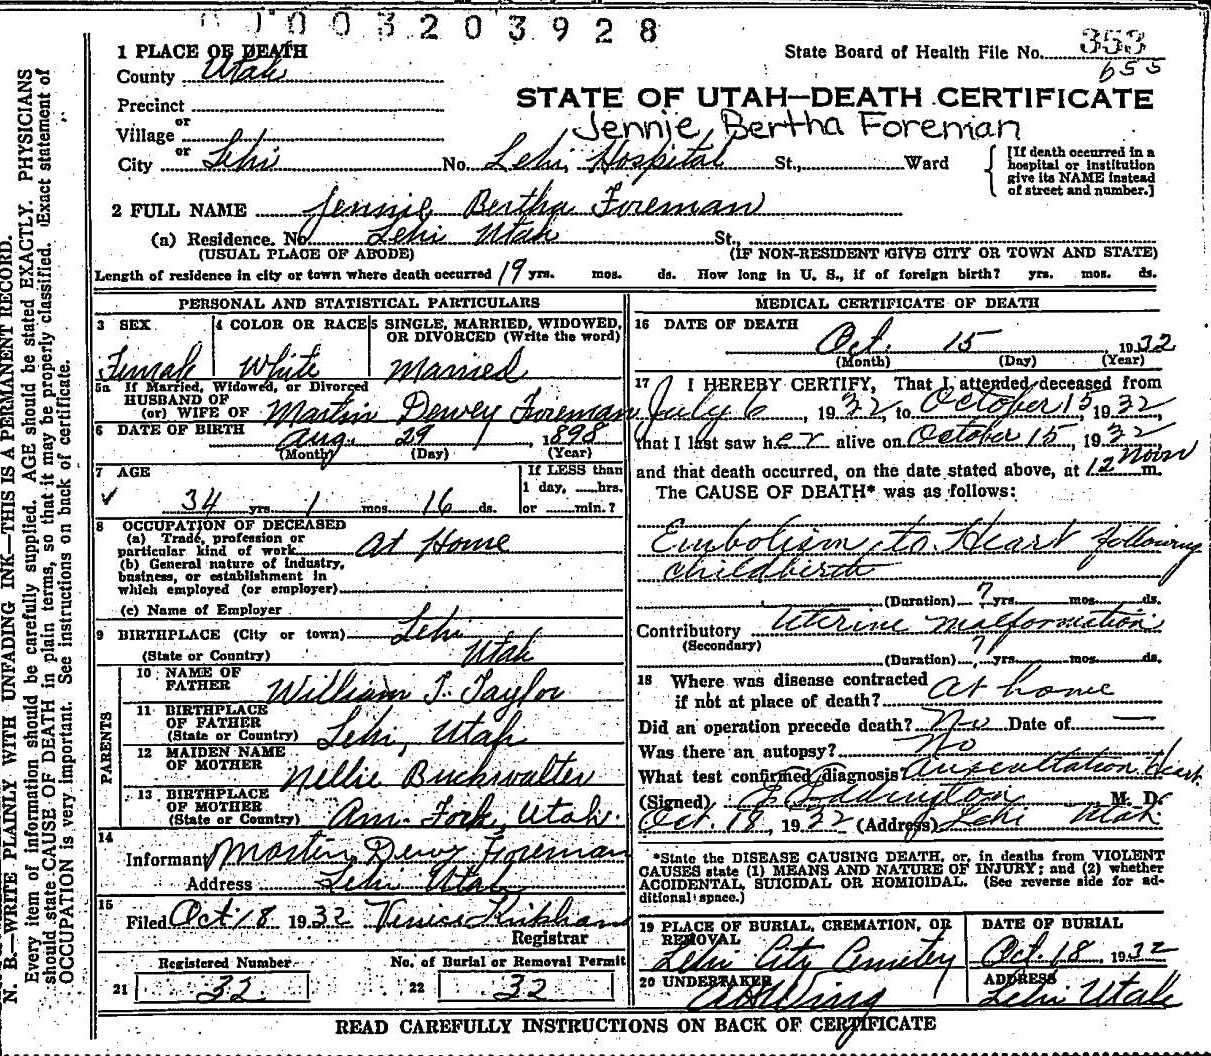 003203928
1 PLACE OF DEATH
State Board of Health File No. 353
655
County Utah
Precinct
or
Village
or
STATE OF UTAH—DEATH CERTIFICATE
Jennie Bertha Foreman
City Lehi No. Lehi Hospital St., Ward
[If death occurred in a
hospital or institution
give its NAME instead
of street and number.]
2 FULL NAME Jennie Bertha Foreman
(a) Residence. No. Lehi Utah St.,
(USUAL PLACE OF ABODE) (IF NON-RESIDENT GIVE CITY OR TOWN AND STATE)
Length of residence in city or town where death occurred 19 yrs. mos. ds. How long in U. S., if of foreign birth? yrs. mos. ds.
PERSONAL AND STATISTICAL PARTICULARS
3 SEX 4 COLOR OR RACE 5 SINGLE, MARRIED, WIDOWED,
OR DIVORCED (Write the word)
Female White Married
5a If Married, Widowed, or Divorced
HUSBAND OF
(or) WIFE OF Martin Dewey Foreman
6 DATE OF BIRTH Aug. 29, 1898
(Month) (Day) (Year)
7 AGE If LESS than
1 day, ......hrs.
34 yrs. 1 mos. 16 ds. or ......min.?
8 OCCUPATION OF DECEASED
(a) Trade, profession or
particular kind of work At Home
(b) General nature of industry,
business, or establishment in
which employed (or employer)
(c) Name of Employer
9 BIRTHPLACE (City or town) Lehi
(State or Country) Utah
PARENTS
10 NAME OF
FATHER William T. Taylor
11 BIRTHPLACE
OF FATHER
(State or Country) Lehi, Utah
12 MAIDEN NAME
OF MOTHER Nellie Buckwalter
13 BIRTHPLACE
OF MOTHER
(State or Country) Am. Fork, Utah.
14
Informant Martin Dewey Foreman
Address Lehi Utah
15
Filed Oct 18 1932 Venice Kirkham
Registrar
Registered Number No. of Burial or Removal Permit
21 32 22 32
MEDICAL CERTIFICATE OF DEATH
16 DATE OF DEATH
Oct. 15 1932
(Month) (Day) (Year)
17 I HEREBY CERTIFY, That I attended deceased from
July 6, 1932, to October 15, 1932,
that I last saw her alive on October 15, 1932
and that death occurred, on the date stated above, at 12 Noon m.
The CAUSE OF DEATH* was as follows:
Embolism to Heart following
childbirth
(Duration) ? yrs. mos. ds.
Contributory Uterine malformation
(Secondary)
(Duration) ? yrs. mos. ds.
18 Where was disease contracted
if not at place of death? At home
Did an operation precede death? No Date of —
Was there an autopsy? No
What test confirmed diagnosis Auscultation Heart
(Signed) Eddington M. D.
Oct. 18, 1932 (Address) Lehi Utah.
*State the DISEASE CAUSING DEATH, or, in deaths from VIOLENT
CAUSES state (1) MEANS AND NATURE OF INJURY; and (2) whether
ACCIDENTAL, SUICIDAL OR HOMICIDAL. (See reverse side for ad-
ditional space.)
19 PLACE OF BURIAL, CREMATION, OR
REMOVAL DATE OF BURIAL
Lehi City Cemetery Oct. 18, 1932
20 UNDERTAKER ADDRESS
Wing Lehi Utah
READ CAREFULLY INSTRUCTIONS ON BACK OF CERTIFICATE
N. B.—WRITE PLAINLY WITH UNFADING INK—THIS IS A PERMANENT RECORD.
Every item of information should be carefully supplied. AGE should be stated EXACTLY. PHYSICIANS
should state CAUSE OF DEATH in plain terms, so that it may be properly classified. Exact statement of
OCCUPATION is very important. See instructions on back of certificate.